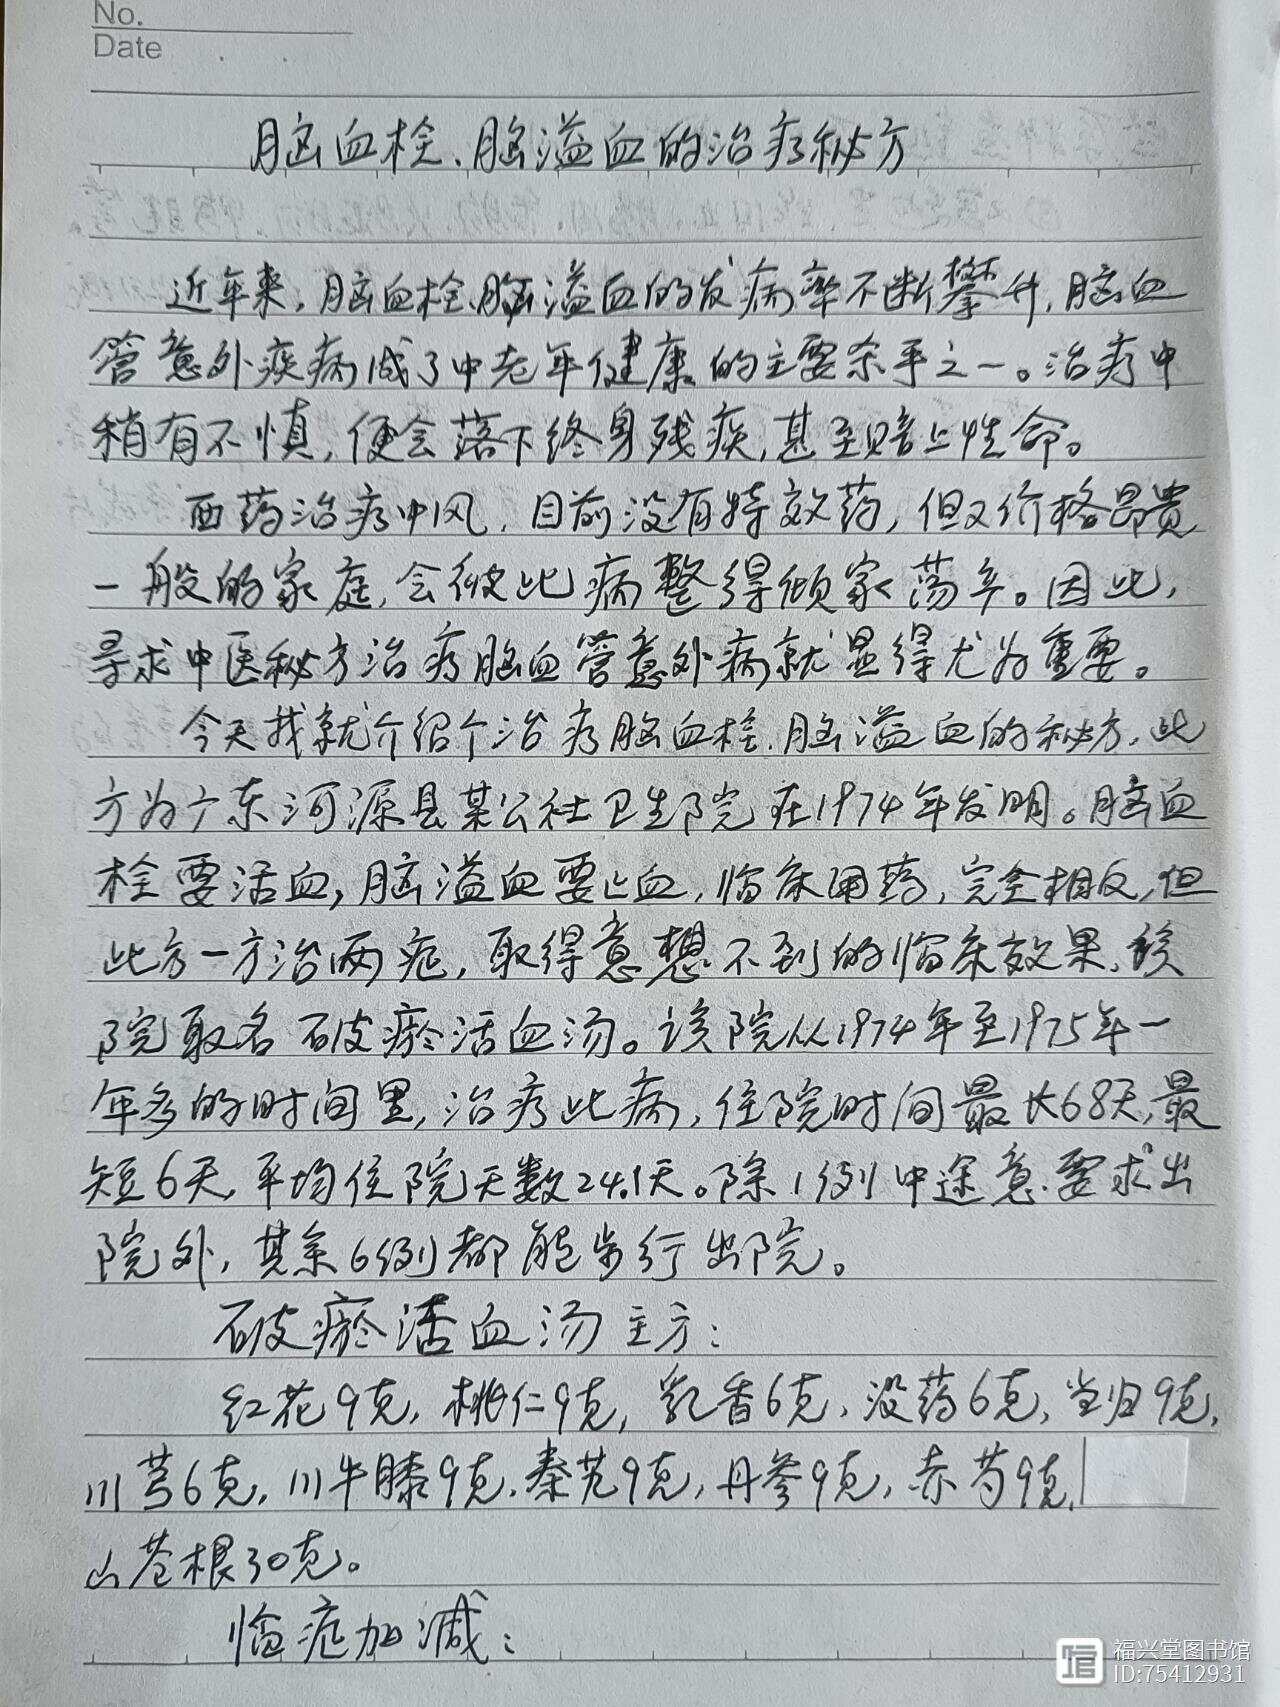 No.
Date
脑血栓、脑溢血的治疗秘方
近年来,脑血栓、脑溢血的发病率不断攀升,脑血
管意外疾病成了中老年健康的主要杀手之一。治疗中
稍有不慎,便会落下终身残疾,甚至赔上性命。
西药治疗中风,目前没有特效药,但又价格昂贵
一般的家庭,会被此病整得倾家荡产。因此,
寻求中医秘方治疗脑血管意外病就显得尤为重要。
今天我就介绍个治疗脑血栓、脑溢血的秘方,此
方为广东河源县某公社卫生院在1974年发明。脑血
栓要活血,脑溢血要止血,临床用药,完全相反,但
此方一方治两症,取得意想不到的临床效果,该
院取名破瘀活血汤。该院从1974年至1975年一
年多的时间里,治疗此病,住院时间最长68天,最
短6天,平均住院天数24.1天。除1例中途意要求出
院外,其余6例都能步行出院。
破瘀活血汤主方:
红花9克,桃仁9克,乳香6克,没药6克,当归9克,
川芎6克,川牛膝9克,秦艽9克,丹参9克,赤芍9克,
山苍根30克。
临症加减:
福兴堂图书馆
ID:75412931